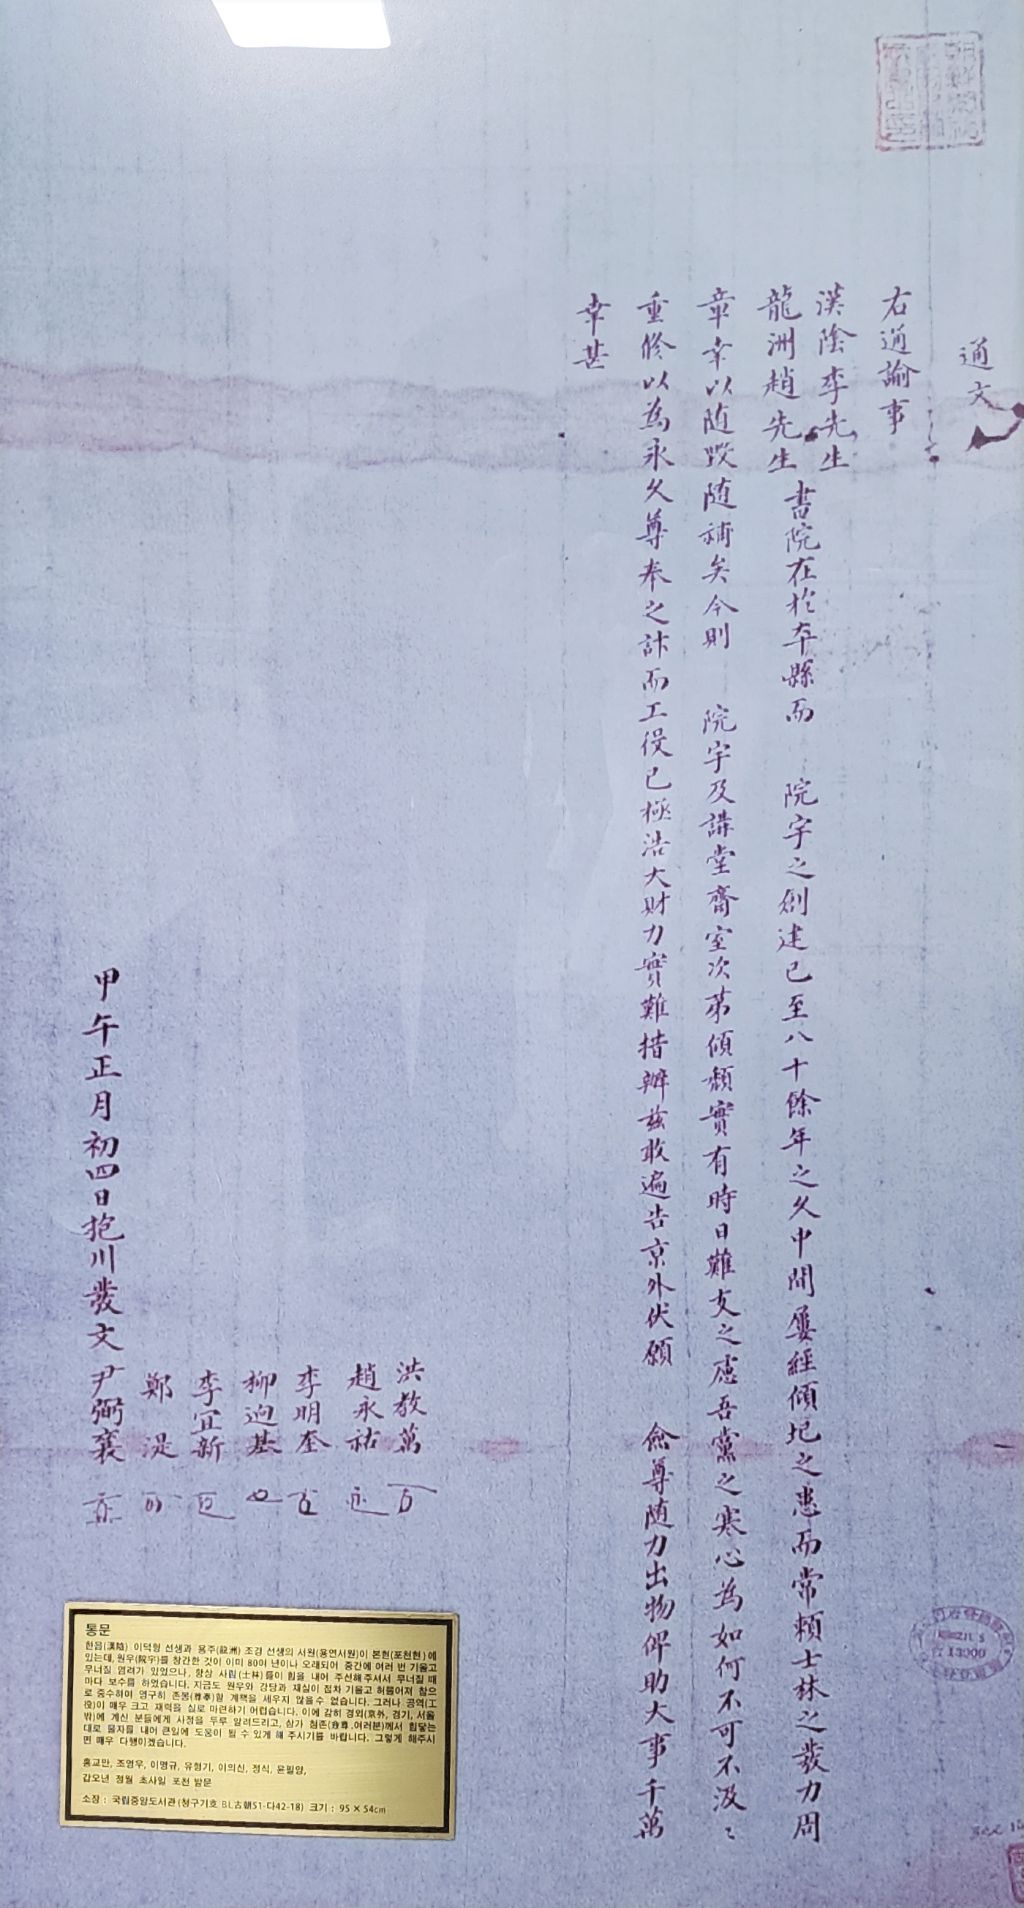 通文
右通諭事
漢陰李先生
龍洲趙先生
書院在於本縣而 院宇之創建已至八十餘年之久中間屢經傾圮之患而常賴士林之發力周
章幸以随毀随補矣今則 院宇及講堂齋室次第傾頹實有時日難支之慮吾黨之寒心為如何不可不汲〻
重修以為永久尊奉之計而工役已極浩大財力實難措辦玆敢遍告京外伏願 僉尊随力出物俾助大事千萬
幸甚
洪敎萬
趙永祐
李明奎
柳逈基
李宜新
鄭湜
甲午正月初四日抱川發文 尹弼襄
통문
한음(漢陰) 이덕형 선생과 용주(龍洲) 조경 선생의 서원(용연서원)이 본현(포천현) 에
있는데, 원우(院宇)를 창건한 것이 이미 80여 년이나 오래되어 중간에 여러 번 기울고
무너질 염려가 있었으나, 항상 사림(士林)들이 힘을 내어 주선해주셔서 무너질 때
마다 보수를 하였습니다. 지금도 원우와 강당과 재실이 점차 기울고 허물어져 참으
로 중수하여 영구히 존봉(尊奉)할 계책을 세우지 않을 수 없습니다. 그러나 공역(工
役)이 매우 크고 재력을 실로 마련하기 어렵습니다. 이에 감히 경외(京外, 경기, 서울
밖)에 계신 분들에게 사정을 두루 알려드리고, 삼가 첨존(僉尊,여러분)께서 힘닿는
대로 물자를 내어 큰일에 도움이 될 수 있게 해 주시기를 바랍니다. 그렇게 해주시
면 매우 다행이겠습니다.
홍교만, 조영우, 이명규, 유형기, 이의신, 정식, 윤필양,
갑오년 정월 초사일 포천 발문
소장 : 국립중앙도서관(청구기호 BL古朝51-다42-18) 크기 : 95 × 54cm